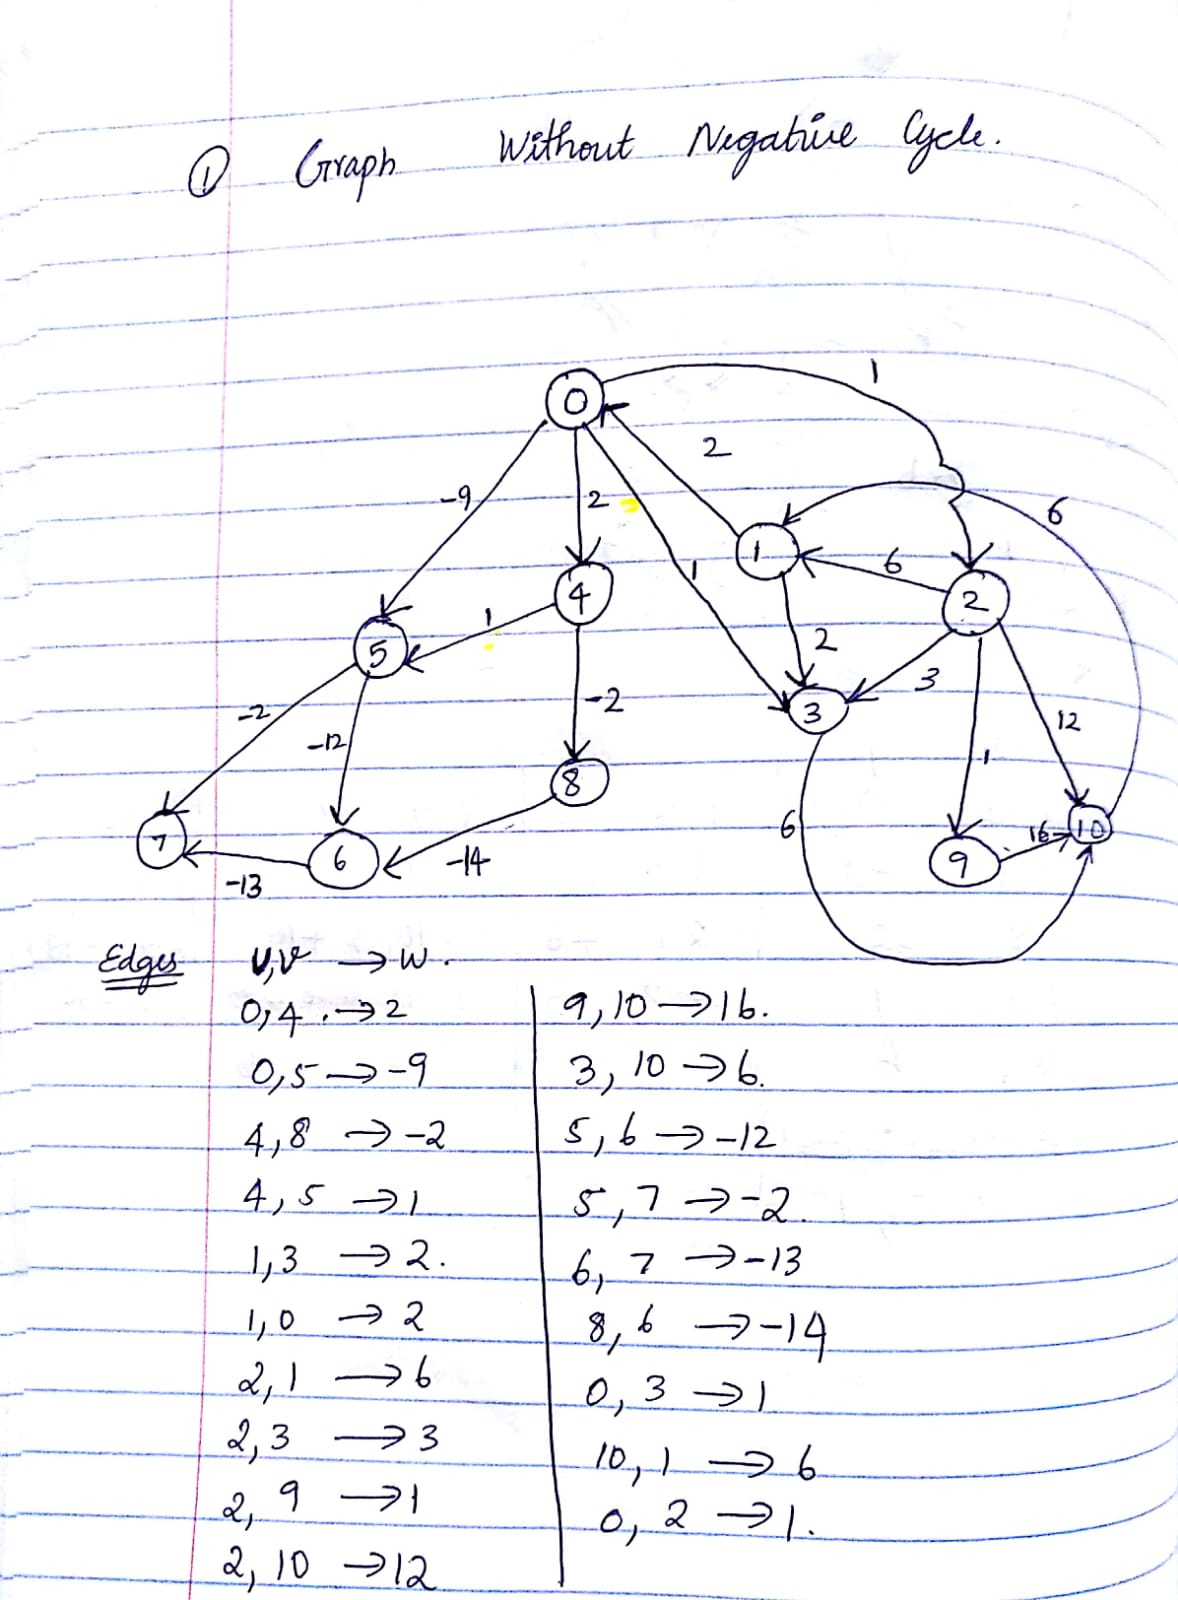 ① Graph Without Negative Cycle.
1
0
2
-9
2
6
1
1
6
4
2
1
5
2
3
-2
3
12
-2
-12
8
1
6
10
7
16
6
9
-14
-13
Edges U,V → W.
0,4 . → 2
0,5 → -9
4,8 → -2
4,5 → 1
1,3 → 2.
1,0 → 2
2,1 → 6
2,3 → 3
2,9 → 1
2,10 → 12
9,10 → 16.
3,10 → 6.
5,6 → -12
5,7 → -2.
6,7 → -13
8,6 → -14
0,3 → 1
10,1 → 6
0,2 → 1.